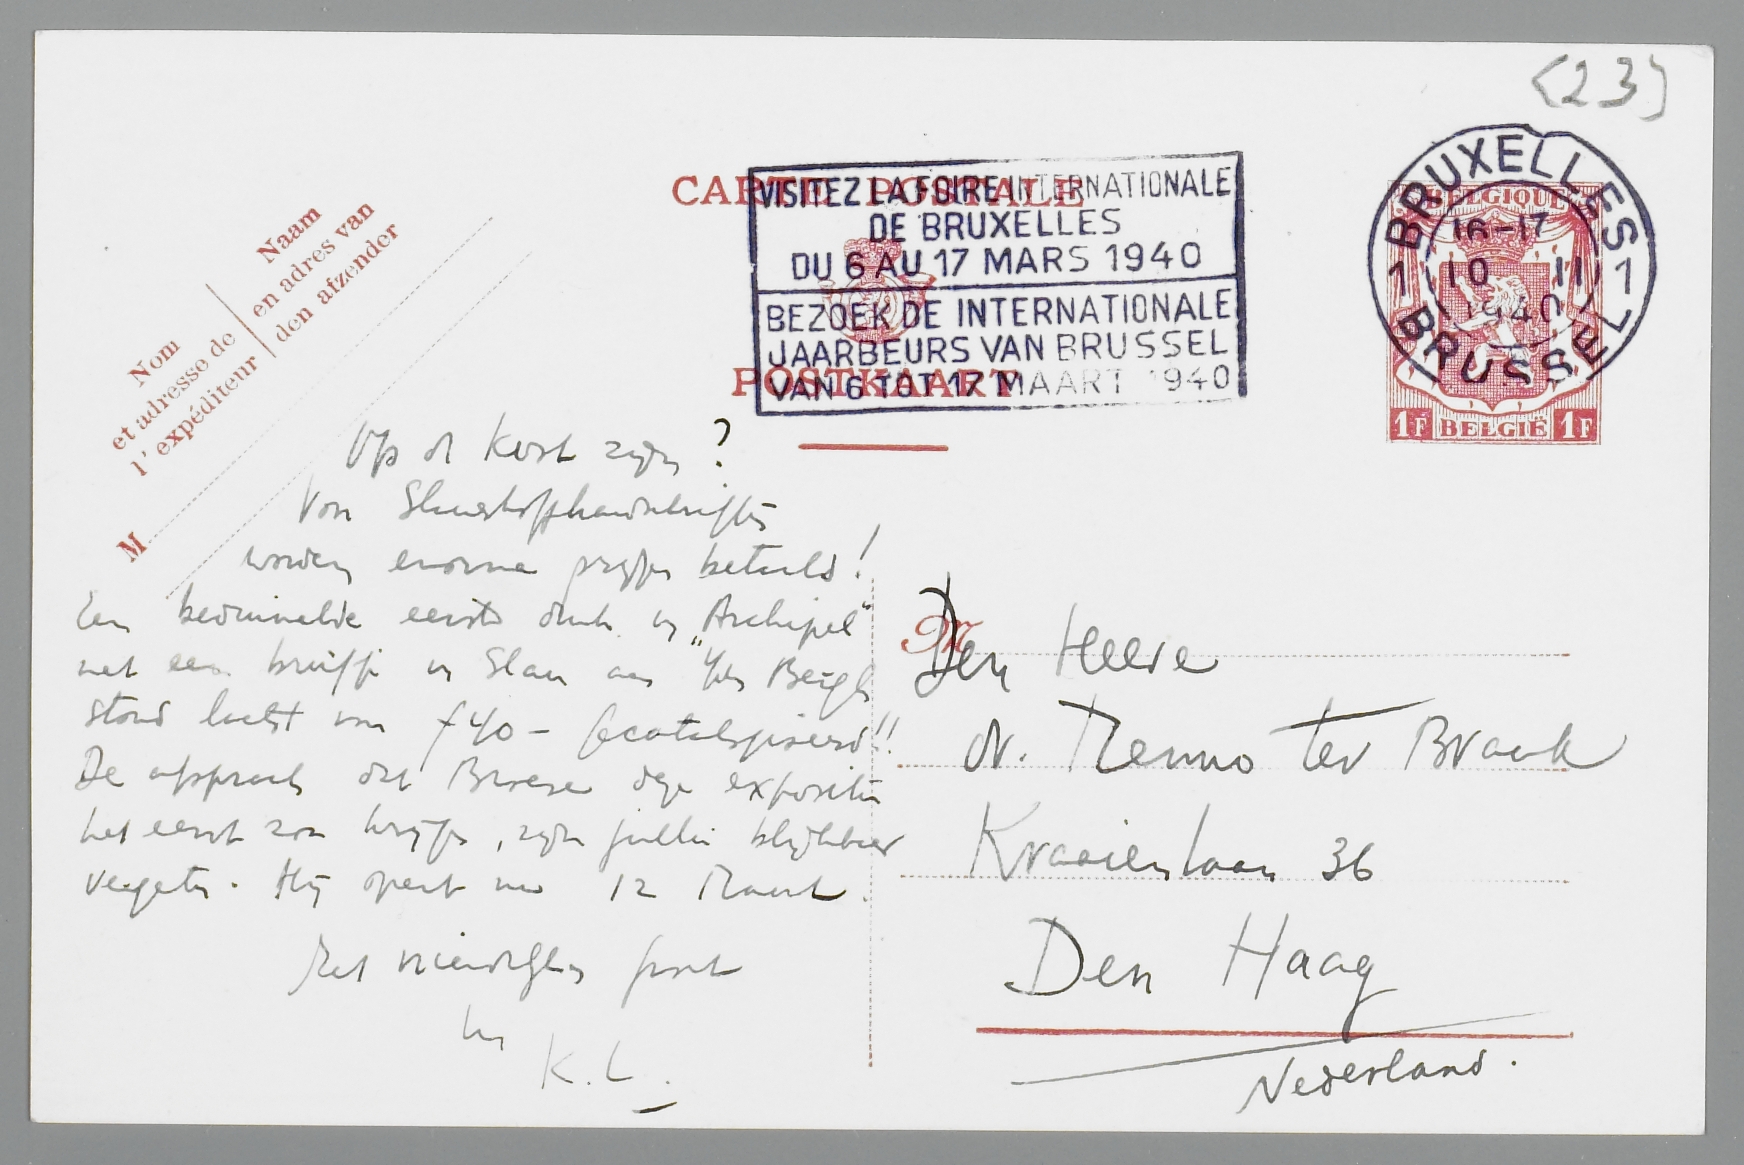 (23)
CARTE POSTALE
POSTKAART
VISITEZ LA FOIRE INTERNATIONALE
DE BRUXELLES
DU 6 AU 17 MARS 1940
BEZOEK DE INTERNATIONALE
JAARBEURS VAN BRUSSEL
VAN 6 TOT 17 MAART 1940
BRUXELLES
1 1
16-17
10 II
1940
BRUSSEL
BELGIQUE
1F BELGIË 1F
Naam
en adres van
den afzender
Nom
et adresse de
l'expéditeur
M
Op de kost zijn?
Van Slauerhoffhandschriften
worden enorme prijzen betaald!
Een beduimelde eerste druk v "Archipel"
met een briefje v Slau aan
stond laatst voor f 40 – gecatalogiseerd!!
De afspraak dat Broese deze expositie
het eerst zou krijgen, zijn jullie blijkbaar
vergeten. Hij opent nu 12 Maart.
Met vriendelijken groet
K.L.
M
Den Heere
dr. Menno ter Braak
Kraaienlaan 36
Den Haag
Nederland.